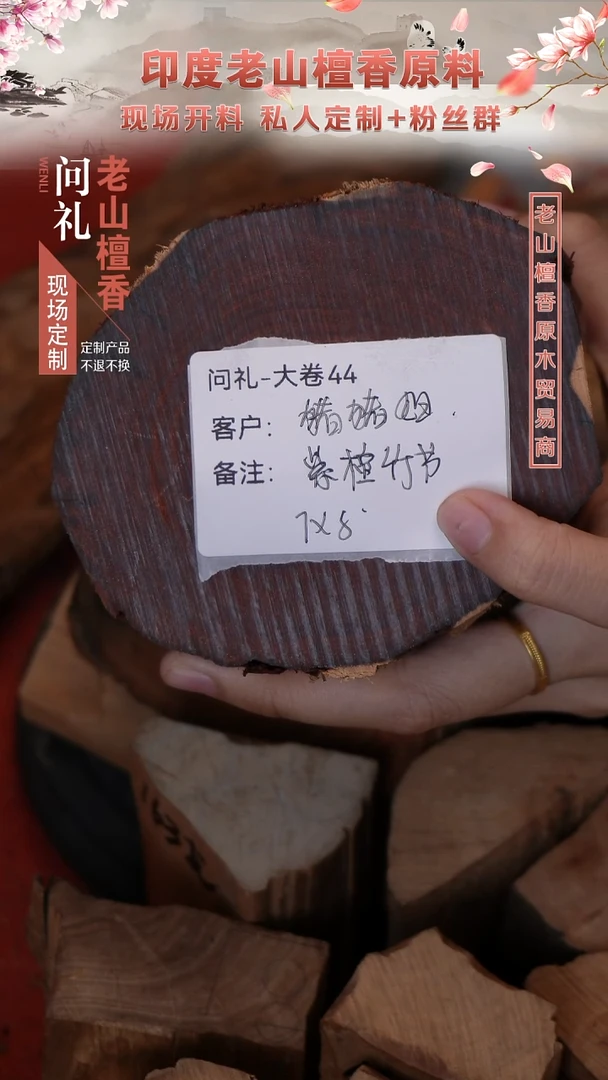 印度老山檀香原料
现场开料 私人定制+粉丝群
WENLI
问礼
老山檀香
现场定制
定制产品
不退不换
老山檀香原木贸易商
问礼-大卷44
客户：
备注：紫檀竹节
7X8